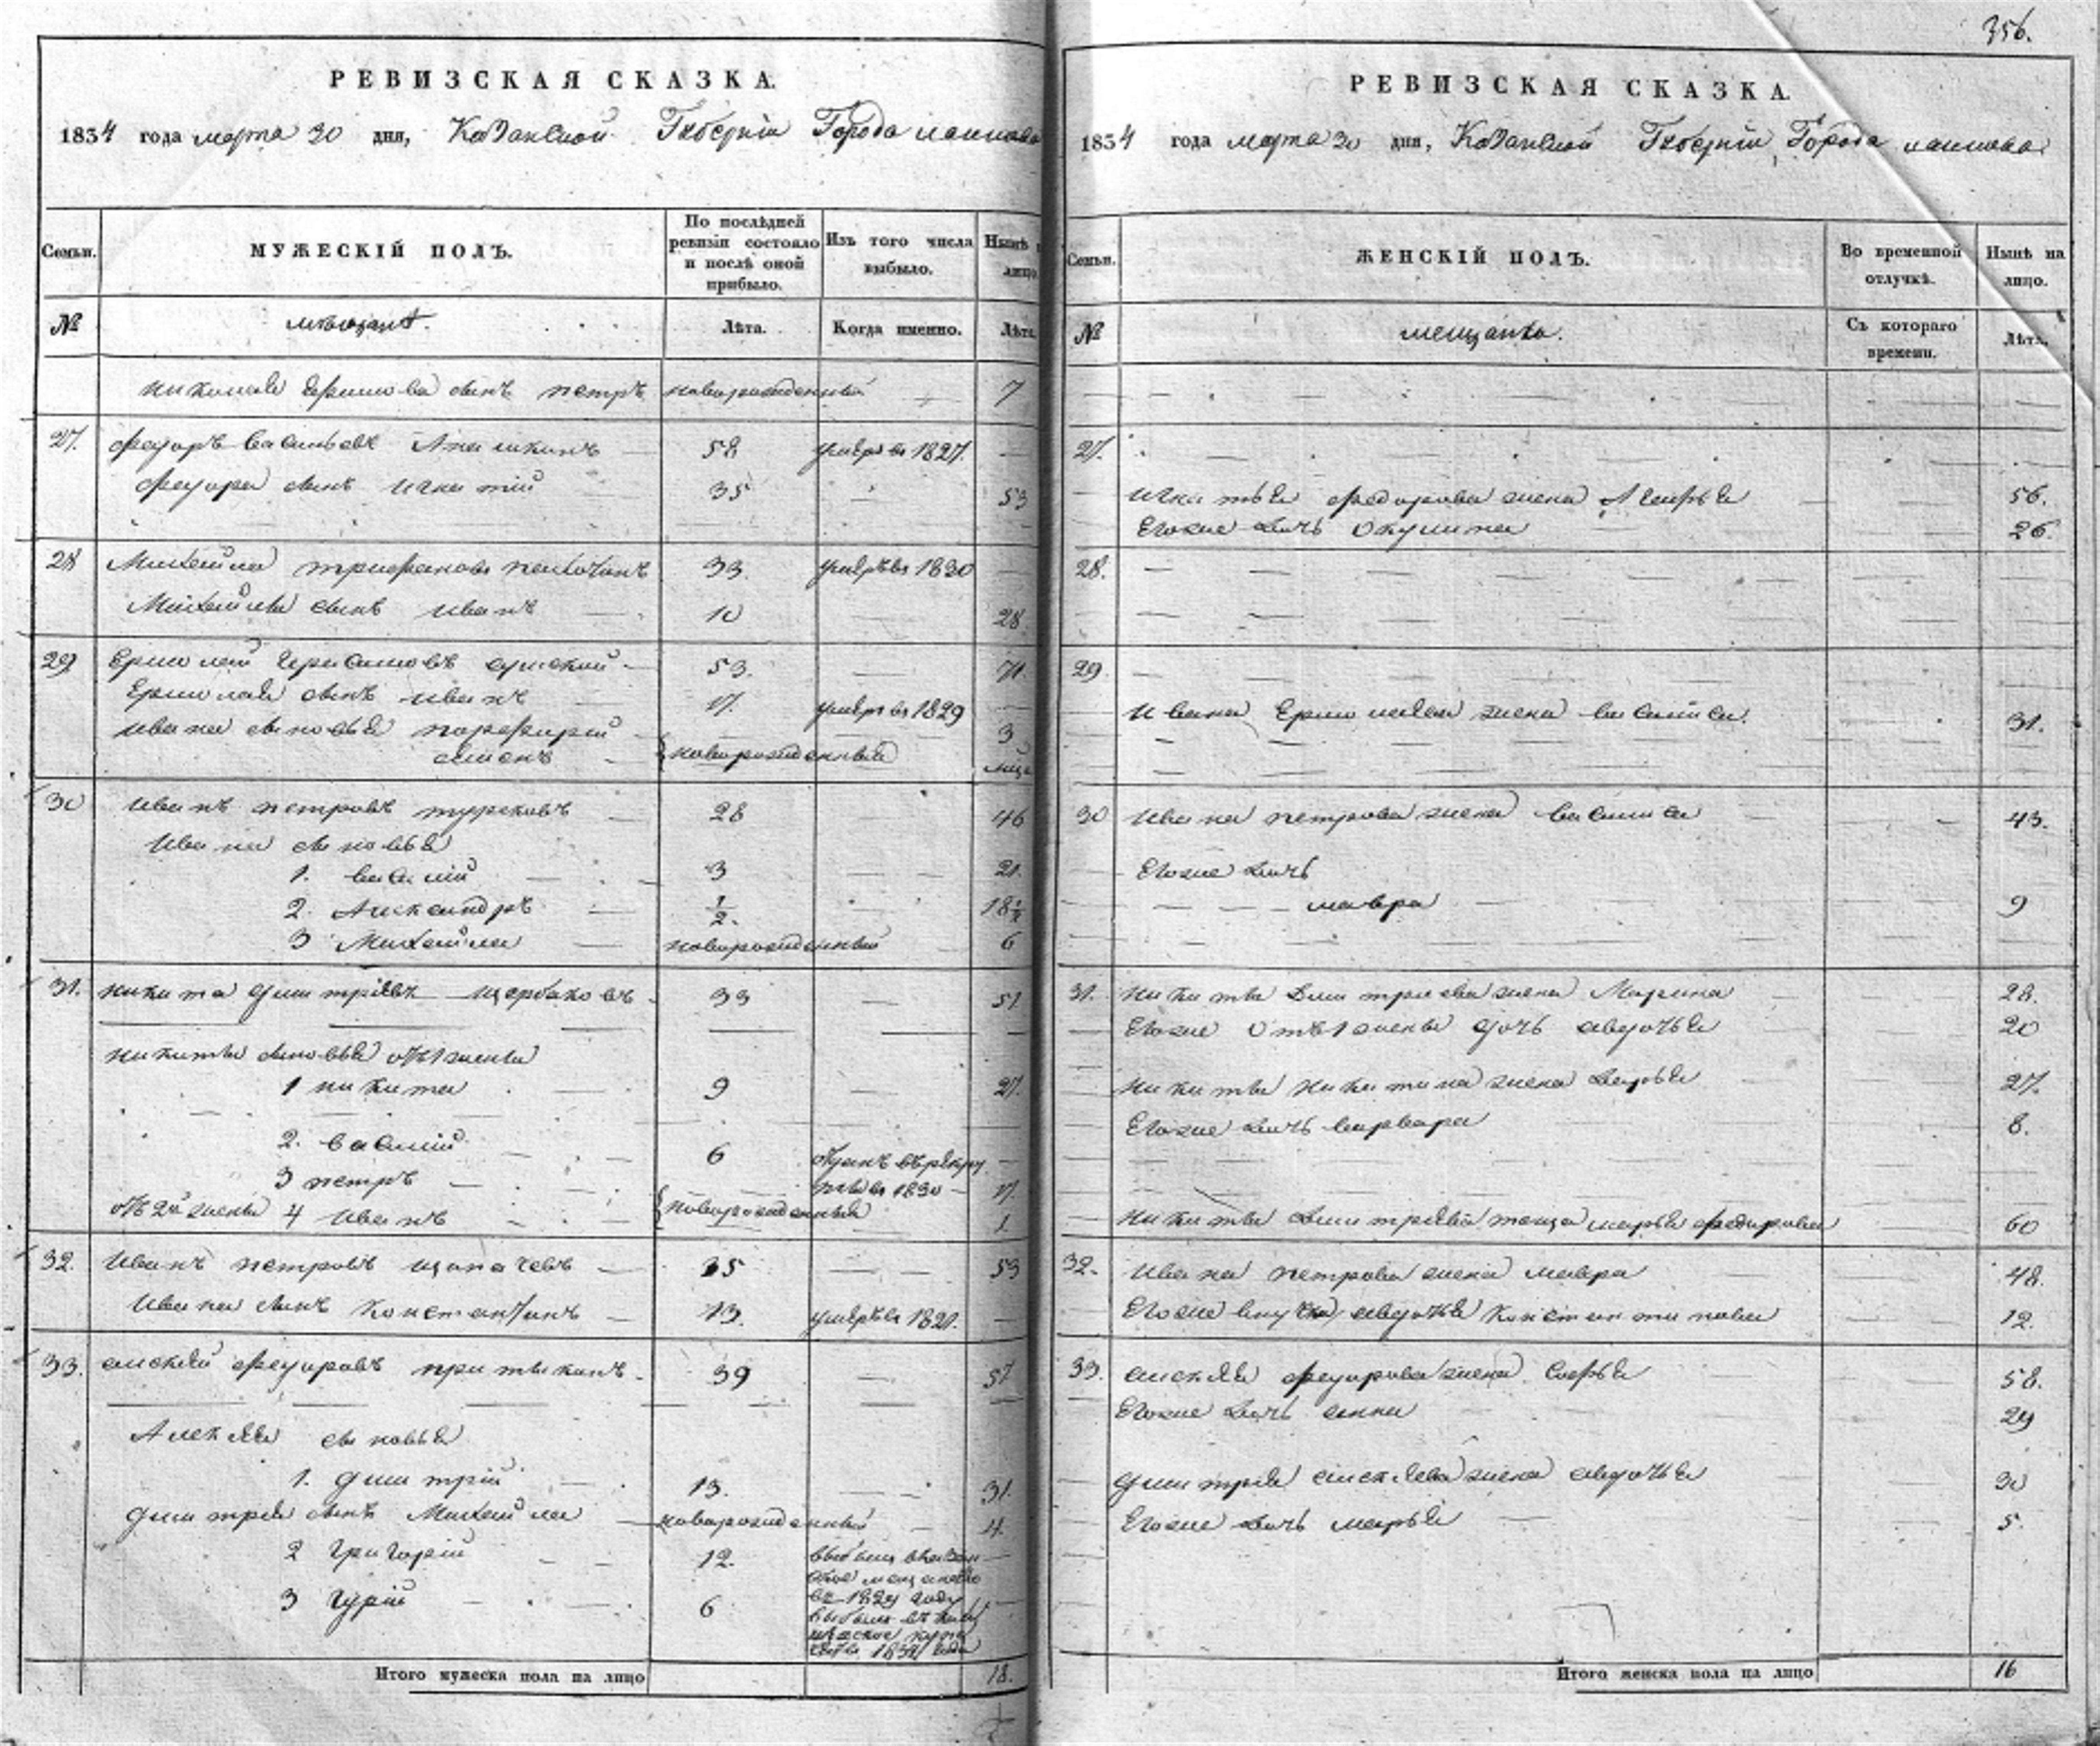 356.
РЕВИЗСКАЯ СКАЗКА.
1834 года марта 30 дня, Казанской Губерніи Города лаишева
Семьи.
МУЖЕСКІЙ ПОЛЪ.
По послѣдней ревизіи состояло и послѣ оной прибыло.
Изъ того числа выбыло.
Нынѣ на лицо
№
мѣщанѣ.
Лѣта.
Когда именно.
Лѣта.
николая Ермилова сынъ петръ новорожденный 7
27. федоръ васильевъ 58 умеръ въ 1827.
федора сынъ игнатій 35 53
28 Михайла трифановъ 33. умеръ въ 1830
Михайлы сынъ иванъ 10 28
29 Ермолай герасимовъ 53. 71.
Ермолая сынъ иванъ 17. умеръ въ 1829
ивана сыновья порфирій 3
семенъ новорожденныя
30 иванъ петровъ 28 46
Ивана сыновья
1. василій 3 21.
2. Александръ 1/2. 18 1/2
3 Михайла новорожденный 6
31. никита дмитріевъ щербаковъ 33 51
никиты сыновья отъ 1 жены
1 никита 9 27.
2. василій 6 отданъ въ рекруты въ 1830
3 петръ 17
отъ 2й жены 4 иванъ новорожденныя 1
32. иванъ петровъ 35 53
Ивана сынъ константинъ 13. умеръ въ 1821.
33. алексѣй федоровъ притыкинъ 39 57
Алексѣя сыновья
1. дмитрій 13. 31.
дмитрія сынъ Михайла новорожденный 4
2 григорій 12.
въ 1829 году
3 гурій 6
1834 года
Итого мужеска пола на лицо 18.
РЕВИЗСКАЯ СКАЗКА.
1834 года марта 30 дня, Казанской Губерніи, Города лаишева
Семьи.
ЖЕНСКІЙ ПОЛЪ.
Во временной отлучкѣ.
Нынѣ на лицо.
№
мещанки.
Съ котораго времени.
Лѣта.
27.
игнатья федорова жена 56.
Егоже дочь Окулина 26.
28.
29.
ивана Ермолаева жена василиса. 31.
30 ивана петрова жена василиса 43.
Егоже дочь
мавра 9
31. никиты дмитріева жена Марина 28.
Егоже отъ 1 жены дочь авдотья 20
никиты никитина жена дарья 27.
Егоже дочь варвара 8.
никиты дмитріева теща марья федорова 60
32. ивана петрова жена мавра 48.
Егоже внучка авдотья константинова 12.
33. алексѣя федорова жена софья 58.
Егоже дочь анна 29
дмитрія алексѣева жена авдотья 30
Егоже дочь марья 5.
Итого женска пола на лицо 16